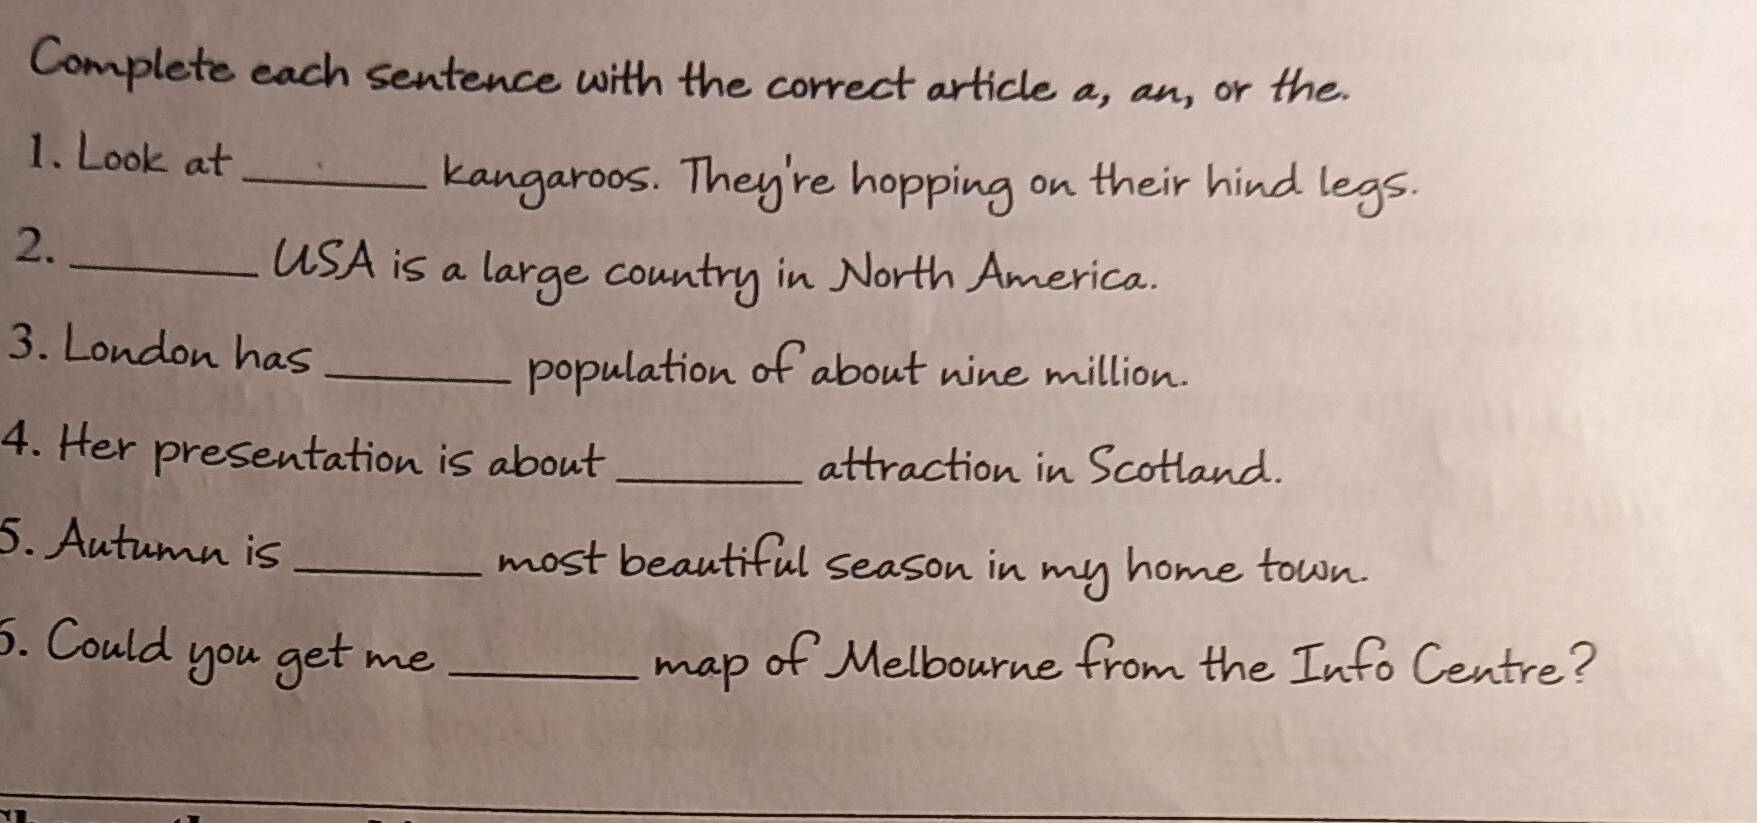 Complete each sentence with the correct article a, an, or the.
1. Look at ________ kangaroos. They're hopping on their hind legs.
2. ________ USA is a large country in North America.
3. London has ________ population of about nine million.
4. Her presentation is about ________ attraction in Scotland.
5. Autumn is ________ most beautiful season in my home town.
6. Could you get me ________ map of Melbourne from the Info Centre?